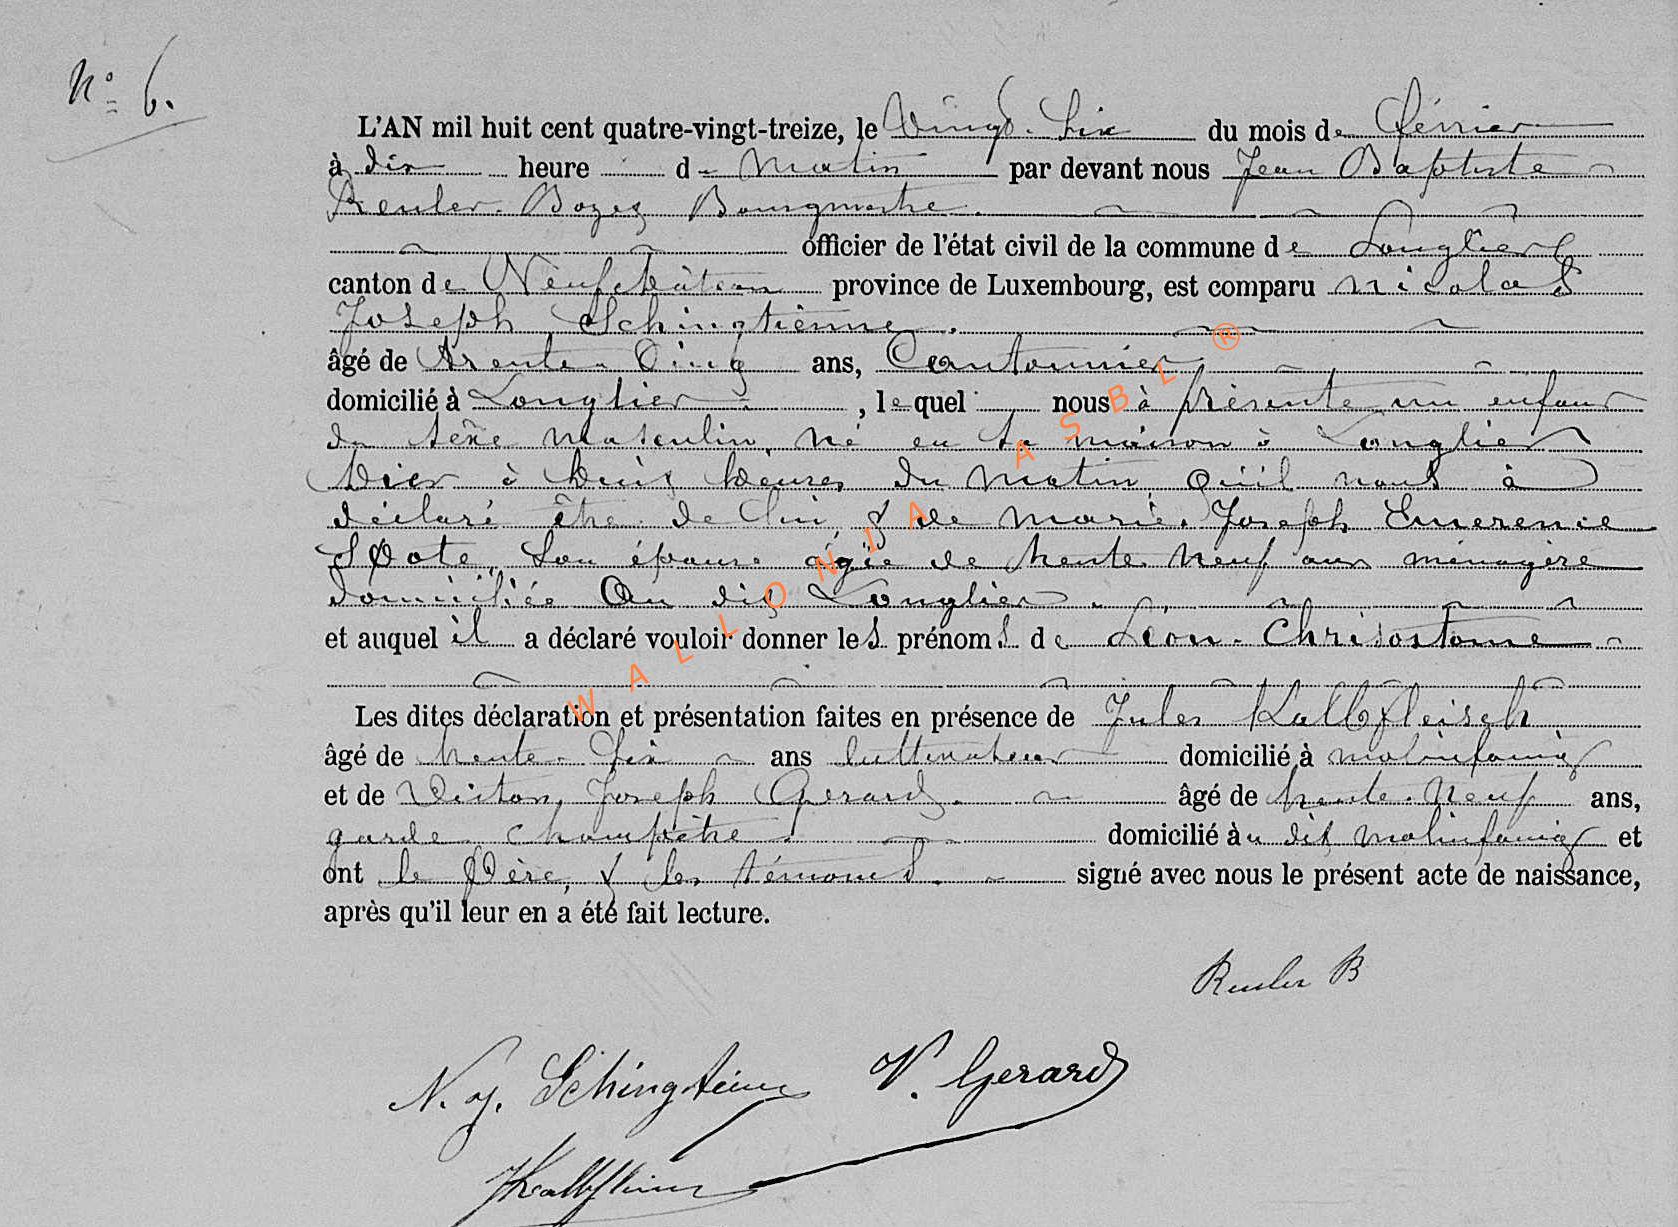 N° 6.
L'AN mil huit cent quatre-vingt-treize, le Vingt-Six du mois de février
à dix heure d matin par devant nous Jean Baptiste
Reuler Bourgmestre.
officier de l'état civil de la commune de Longlier
canton de Neufchâteau province de Luxembourg, est comparu Nicolas
Joseph Schingtienne.
âgé de trente Cinq ans, Cantonnier
domicilié à Longlier, lequel nous à présenté un enfant
du sexe masculin né en sa maison à Longlier
hier à heures du matin, qu'il nous à
déclaré être de lui & de Marie Joseph Emerence
son épouse âgée de trente neuf ans ménagère
domiciliée Au dit Longlier.
et auquel il a déclaré vouloir donner les prénoms de Léon-Chrisostome
Les dites déclaration et présentation faites en présence de Jules Kalbfleisch
âgé de trente-six ans domicilié à molinfaing
et de Victor, Joseph Gerard. âgé de trente-neuf ans,
garde champêtre domicilié àu dit molinfaing et
ont le Père, & les témoins. signé avec nous le présent acte de naissance,
après qu'il leur en a été fait lecture.
Reuler B
N. J. Schingtienne V. Gerard
JKalbfleisch
WALLONIA ASBL ®